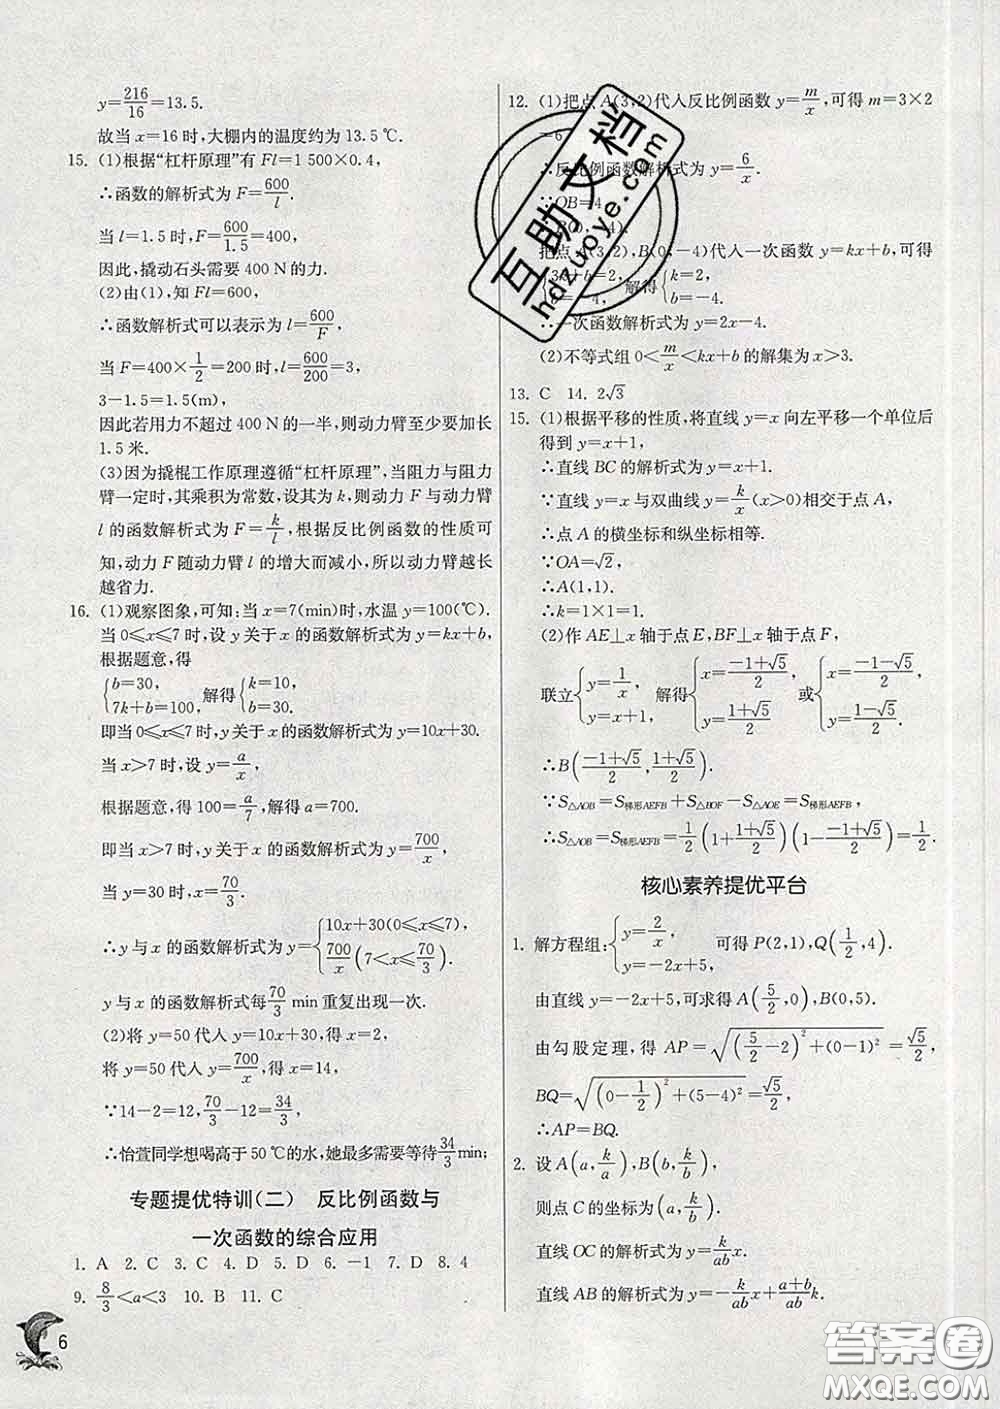 y=216/16=13.5.
故当 x=16 时,大棚内的温度约为 13.5 ℃.
15. (1)根据“杠杆原理”有 Fl=1 500×0.4,
∴函数的解析式为 F=600/l.
当 l=1.5 时,F=600/1.5=400,
因此,撬动石头需要 400 N的力.
(2)由(1),知 Fl=600,
∴函数解析式可以表示为 l=600/F,
当 F=400×1/2=200 时,l=600/200=3,
3-1.5=1.5(m),
因此若用力不超过 400 N的一半,则动力臂至少要加长
1.5 米.
(3)因为撬棍工作原理遵循“杠杆原理”,当阻力与阻力
臂一定时,其乘积为常数,设其为 k,则动力 F 与动力臂
l 的函数解析式为 F=k/l,根据反比例函数的性质可
知,动力 F 随动力臂 l 的增大而减小,所以动力臂越长
越省力.
16. (1)观察图象,可知:当 x=7(min)时,水温 y=100(℃).
当 0≤x≤7 时,设 y 关于 x 的函数解析式为 y=kx+b,
根据题意,得
{b=30, 7k+b=100, 解得{k=10, b=30.
即当 0≤x≤7 时,y 关于 x 的函数解析式为 y=10x+30.
当 x>7 时,设 y=a/x,
根据题意,得 100=a/7,解得 a=700.
即当 x>7 时,y 关于 x 的函数解析式为 y=700/x,
当 y=30 时,x=70/3.
∴y 与 x 的函数解析式为 y={10x+30(0≤x≤7), 700/x(7<x≤70/3).
y 与 x 的函数解析式每70/3 min 重复出现一次.
(2)将 y=50 代入 y=10x+30,得 x=2,
将 y=50 代入 y=700/x,得 x=14,
∵14-2=12,70/3-12=34/3,
∴怡萱同学想喝高于 50 ℃的水,她最多需要等待34/3min;
专题提优特训(二) 反比例函数与
一次函数的综合应用
1. A 2. C 3. C 4. D 5. D 6. -1 7. D 8. 4
9. 8/3<a<3 10. B 11. C
6
12. (1)把点 A(3,2)代入反比例函数 y=m/x,可得 m=3×2
=6
∴反比例函数解析式为 y=6/x.
∵OB=4
把点 A(3,2),B(0,-4)代入一次函数 y=kx+b,可得
{3k+b=2, b=-4, 解得{k=2, b=-4.
∴一次函数解析式为 y=2x-4.
(2)不等式组 0<m/x<kx+b 的解集为 x>3.
13. C 14. 2√3
15. (1)根据平移的性质,将直线 y=x 向左平移一个单位后
得到 y=x+1,
∴直线 BC 的解析式为 y=x+1.
∵直线 y=x 与双曲线 y=k/x(x>0)相交于点 A,
∴点 A 的横坐标和纵坐标相等.
∵OA=√2,
∴A(1,1).
∴k=1×1=1.
(2)作 AE⊥x 轴于点 E,BF⊥x 轴于点 F,
联立{y=1/x, y=x+1, 解得{x=(-1+√5)/2, y=(1+√5)/2 或{x=(-1-√5)/2, y=(1-√5)/2.
∴B((-1+√5)/2,(1+√5)/2).
∵S△AOB=S梯形AEFB+S△BOF-S△AOE=S梯形AEFB,
∴S△AOB=S梯形AEFB=1/2(1+(1+√5)/2)(1-(-1+√5)/2)=1/2.
核心素养提优平台
1. 解方程组:{y=2/x, y=-2x+5, 可得 P(2,1),Q(1/2,4).
由直线 y=-2x+5,可求得 A(5/2,0),B(0,5).
由勾股定理,得 AP=√((5/2-2)²+(0-1)²)=√5/2,
BQ=√((0-1/2)²+(5-4)²)=√5/2,
∴AP=BQ.
2. 设 A(a,k/a),B(b,k/b),
则点 C 的坐标为(a,k/b).
直线 OC 的解析式为 y=k/ab x.
直线 AB 的解析式为 y=-k/ab x+(a+b)/ab k,
互助文档
hdzuoye.com
答案圈
MXQE.COM